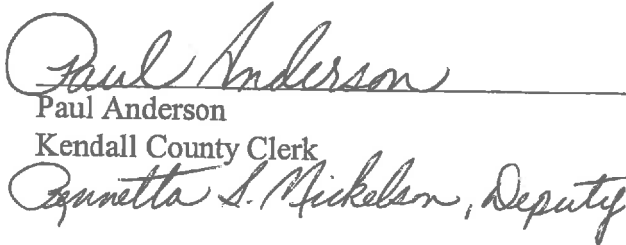 Paul Anderson
Paul Anderson
Kendall County Clerk
Rennetta S. Mickelson, Deputy